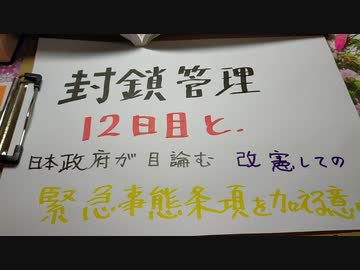 封鎖管理
12日目と、
日本政府が目論む 改憲しての
緊急事態条項を加える意